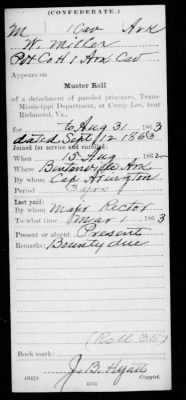 (CONFEDERATE.)
M 1 Cav Ark
W. Miller
Pvt Co H 1 Ark Cav
Appears on
Muster Roll
of a detachment of paroled prisoners, Trans-
Mississippi Department, at Camp Lee, near
Richmond, Va.,
for to Aug 31, 1863
dated Sept 12 1863
Joined for service and enrolled:
When 15 Aug, 1862
Where Bentonville Ark
By whom Cap Arrington
Period 3 yrs
Last paid:
By whom Major Rector
To what time Mar 1, 1863
Present or absent Present
Remarks: Bounty due
(Roll 35)
Book mark:
J. B. Hyatt
Copyist.